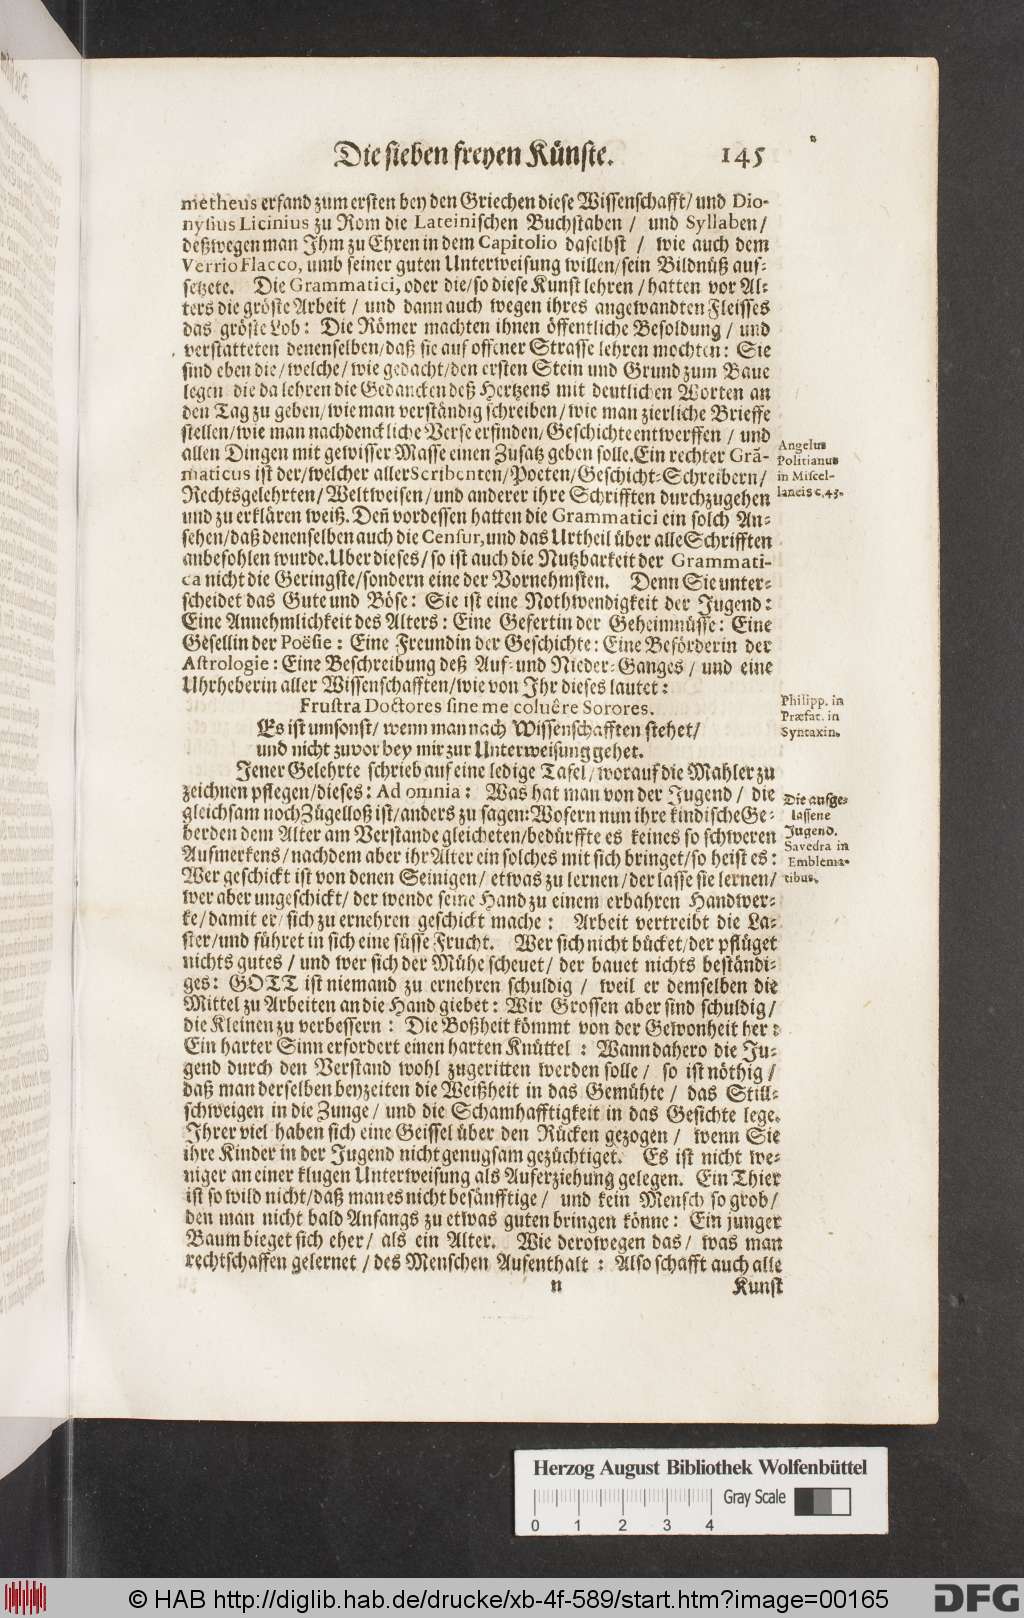 Die sieben freyen Künste. 145
metheus erfand zum ersten bey den Griechen diese Wissenschafft/ und Dio-
nysius Licinius zu Rom die Lateinischen Buchstaben / und Syllaben/
deßwegen man Ihm zu Ehren in dem Capitolio daselbst / wie auch dem
Verrio Flacco, umb seiner guten Unterweisung willen/sein Bildnüß auf-
setzete. Die Grammatici, oder die/so diese Kunst lehren/hatten vor Al-
ters die gröste Arbeit / und dann auch wegen ihres angewandten Fleisses
das gröste Lob: Die Römer machten ihnen öffentliche Besoldung / und
verstatteten denenselben/daß sie auf offener Strasse lehren mochten: Sie
sind eben die/welche/wie gedacht/den ersten Stein und Grund zum Baue
legen die da lehren die Gedancken deß Hertzens mit deutlichen Worten an
den Tag zu geben/wie man verständig schreiben/wie man zierliche Brieffe
stellen/wie man nachdenckliche Verse erfinden/Geschichte entwerffen / und
allen Dingen mit gewisser Masse einen Zusatz geben solle.Ein rechter Grã-
maticus ist der/welcher aller Scribenten/Poeten/Geschicht-Schreibern/
Rechtsgelehrten/Weltweisen/und anderer ihre Schrifften durchzugehen
und zu erklären weiß. Deñ vordessen hatten die Grammatici ein solch An-
sehen/daß denenselben auch die Censur,und das Urtheil über alle Schrifften
anbefohlen wurde.Uber dieses/so ist auch die Nutzbarkeit der Grammati-
ca nicht die Geringste/sondern eine der Vornehmsten. Denn Sie unter-
scheidet das Gute und Böse: Sie ist eine Nothwendigkeit der Jugend:
Eine Annehmlichkeit des Alters: Eine Gefertin der Geheimnüsse: Eine
Gesellin der Poësie: Eine Freundin der Geschichte: Eine Beförderin der
Astrologie: Eine Beschreibung deß Auf-und Nieder-Ganges/ und eine
Uhrheberin aller Wissenschafften/wie von Ihr dieses lautet:
Frustra Doctores sine me coluêre Sorores.
Es ist umsonst/ wenn man nach Wissenschafften stehet/
und nicht zuvor bey mir zur Unterweisung gehet.
Jener Gelehrte schrieb auf eine ledige Tafel/worauf die Mahler zu
zeichnen pflegen/dieses: Ad omnia: Was hat man von der Jugend/ die
gleichsam noch Zügelloß ist/anders zu sagen:Wofern nun ihre kindische Ge-
berden dem Alter am Verstande gleicheten/bedürffte es keines so schweren
Aufmerkens/nachdem aber ihr Alter ein solches mit sich bringet/so heist es:
Wer geschickt ist von denen Seinigen/ etwas zu lernen/der lasse sie lernen/
wer aber ungeschickt/ der wende seine Hand zu einem erbahren Handwer-
ke/damit er/ sich zu ernehren geschickt mache: Arbeit vertreibt die La-
ster/und führet in sich eine süsse Frucht. Wer sich nicht bücket/der pflüget
nichts gutes / und wer sich der Mühe scheuet/ der bauet nichts beständi-
ges: GOTT ist niemand zu ernehren schuldig / weil er demselben die
Mittel zu Arbeiten an die Hand giebet: Wir Grossen aber sind schuldig/
die Kleinen zu verbessern: Die Boßheit kömmt von der Gewonheit her:
Ein harter Sinn erfordert einen harten Knüttel: Wann dahero die Ju-
gend durch den Verstand wohl zugeritten werden solle/ so ist nöthig/
daß man derselben beyzeiten die Weißheit in das Gemühte/ das Still-
schweigen in die Zunge/ und die Schamhafftigkeit in das Gesichte lege.
Ihrer viel haben sich eine Geissel über den Rücken gezogen/ wenn Sie
ihre Kinder in der Jugend nicht genugsam gezüchtiget. Es ist nicht we-
niger an einer klugen Unterweisung als Auferziehung gelegen. Ein Thier
ist so wild nicht/daß man es nicht besänfftige/ und kein Mensch so grob/
den man nicht bald Anfangs zu etwas guten bringen könne: Ein junger
Baum bieget sich eher/ als ein Alter. Wie derowegen das/ was man
rechtschaffen gelernet/des Menschen Aufenthalt: Also schafft auch alle
n Kunst
Angelus
Politianus
in Miscel-
laneis c.45.
Philipp. in
Præfat. in
Syntaxin.
Die ausge-
lassene
Jugend.
Savedra in
Emblema-
tibus.
Herzog August Bibliothek Wolfenbüttel
Gray Scale
0 1 2 3 4
© HAB http://diglib.hab.de/drucke/xb-4f-589/start.htm?image=00165
DFG